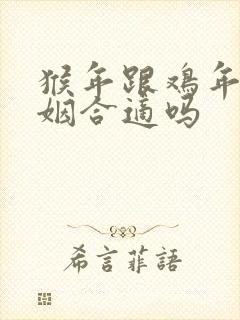 猴年跟鸡年
姻合适吗
希言菲語